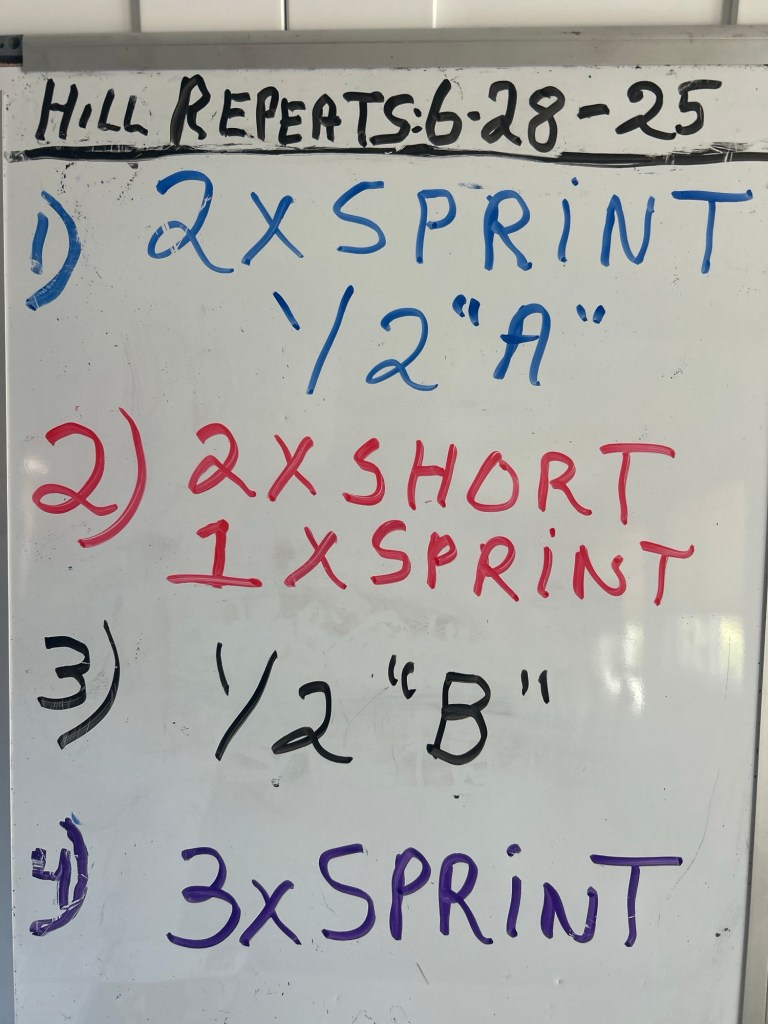 HiLL REPEATS:6-28-25
1) 2XSPRiNT
1/2 "A"
2) 2XSHORT
1XSPRiNT
3) 1/2 "B"
4) 3XSPRiNT